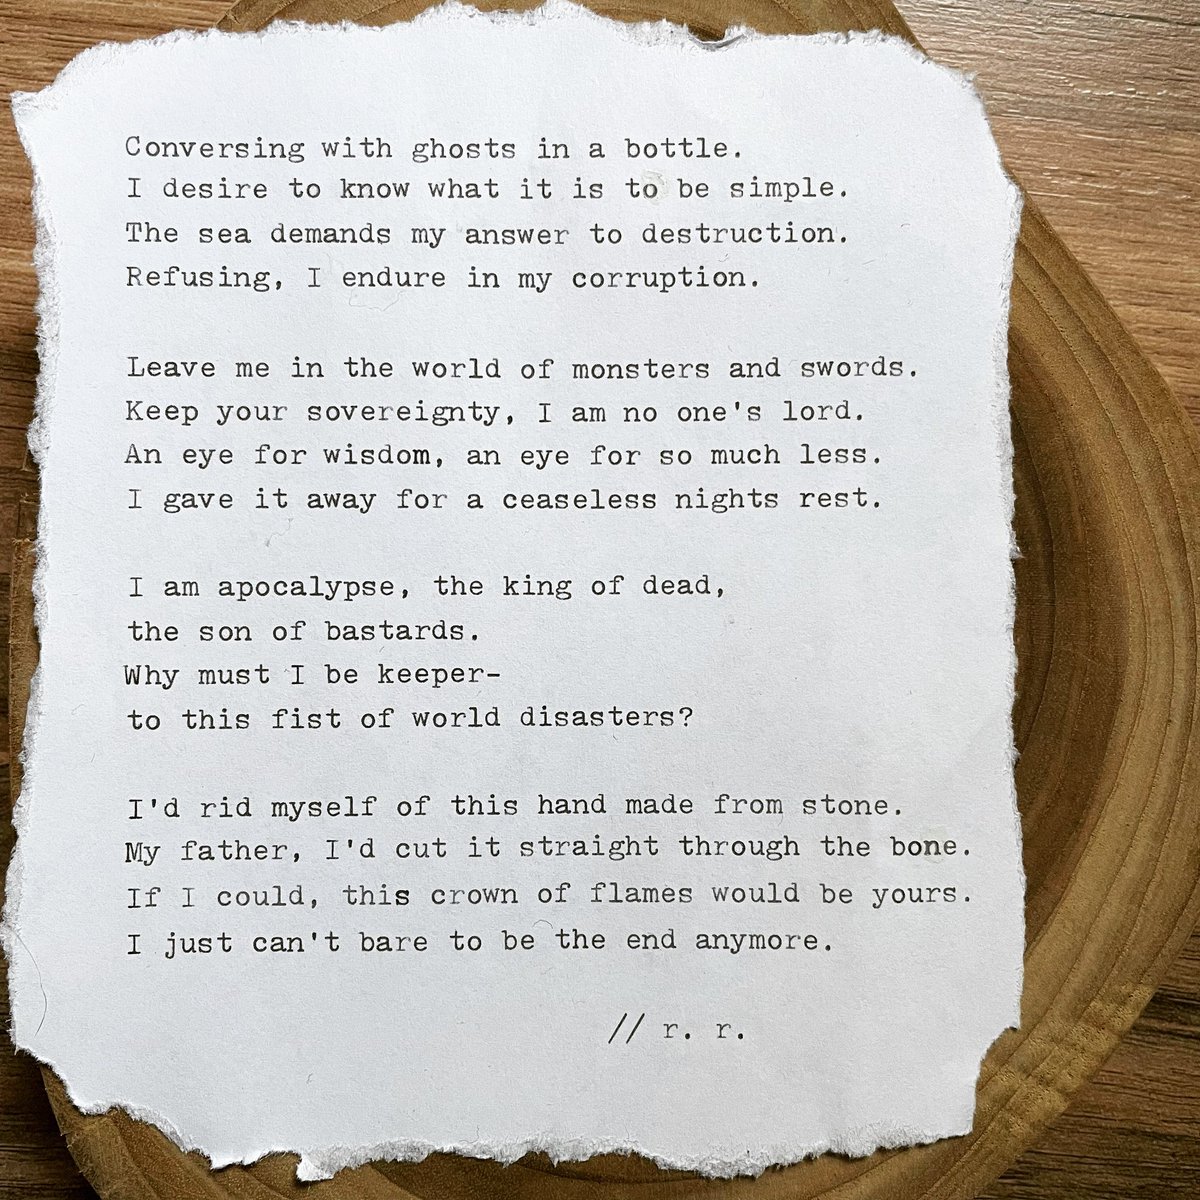 Conversing with ghosts in a bottle.
I desire to know what it is to be simple.
The sea demands my answer to destruction.
Refusing, I endure in my corruption.
Leave me in the world of monsters and swords.
Keep your sovereignty, I am no one's lord.
An eye for wisdom, an eye for so much less.
I gave it away for a ceaseless nights rest.
I am apocalypse, the king of dead,
the son of bastards.
Why must I be keeper-
to this fist of world disasters?
I'd rid myself of this hand made from stone.
My father, I'd cut it straight through the bone.
If I could, this crown of flames would be yours.
I just can't bare to be the end anymore.
// r. r.